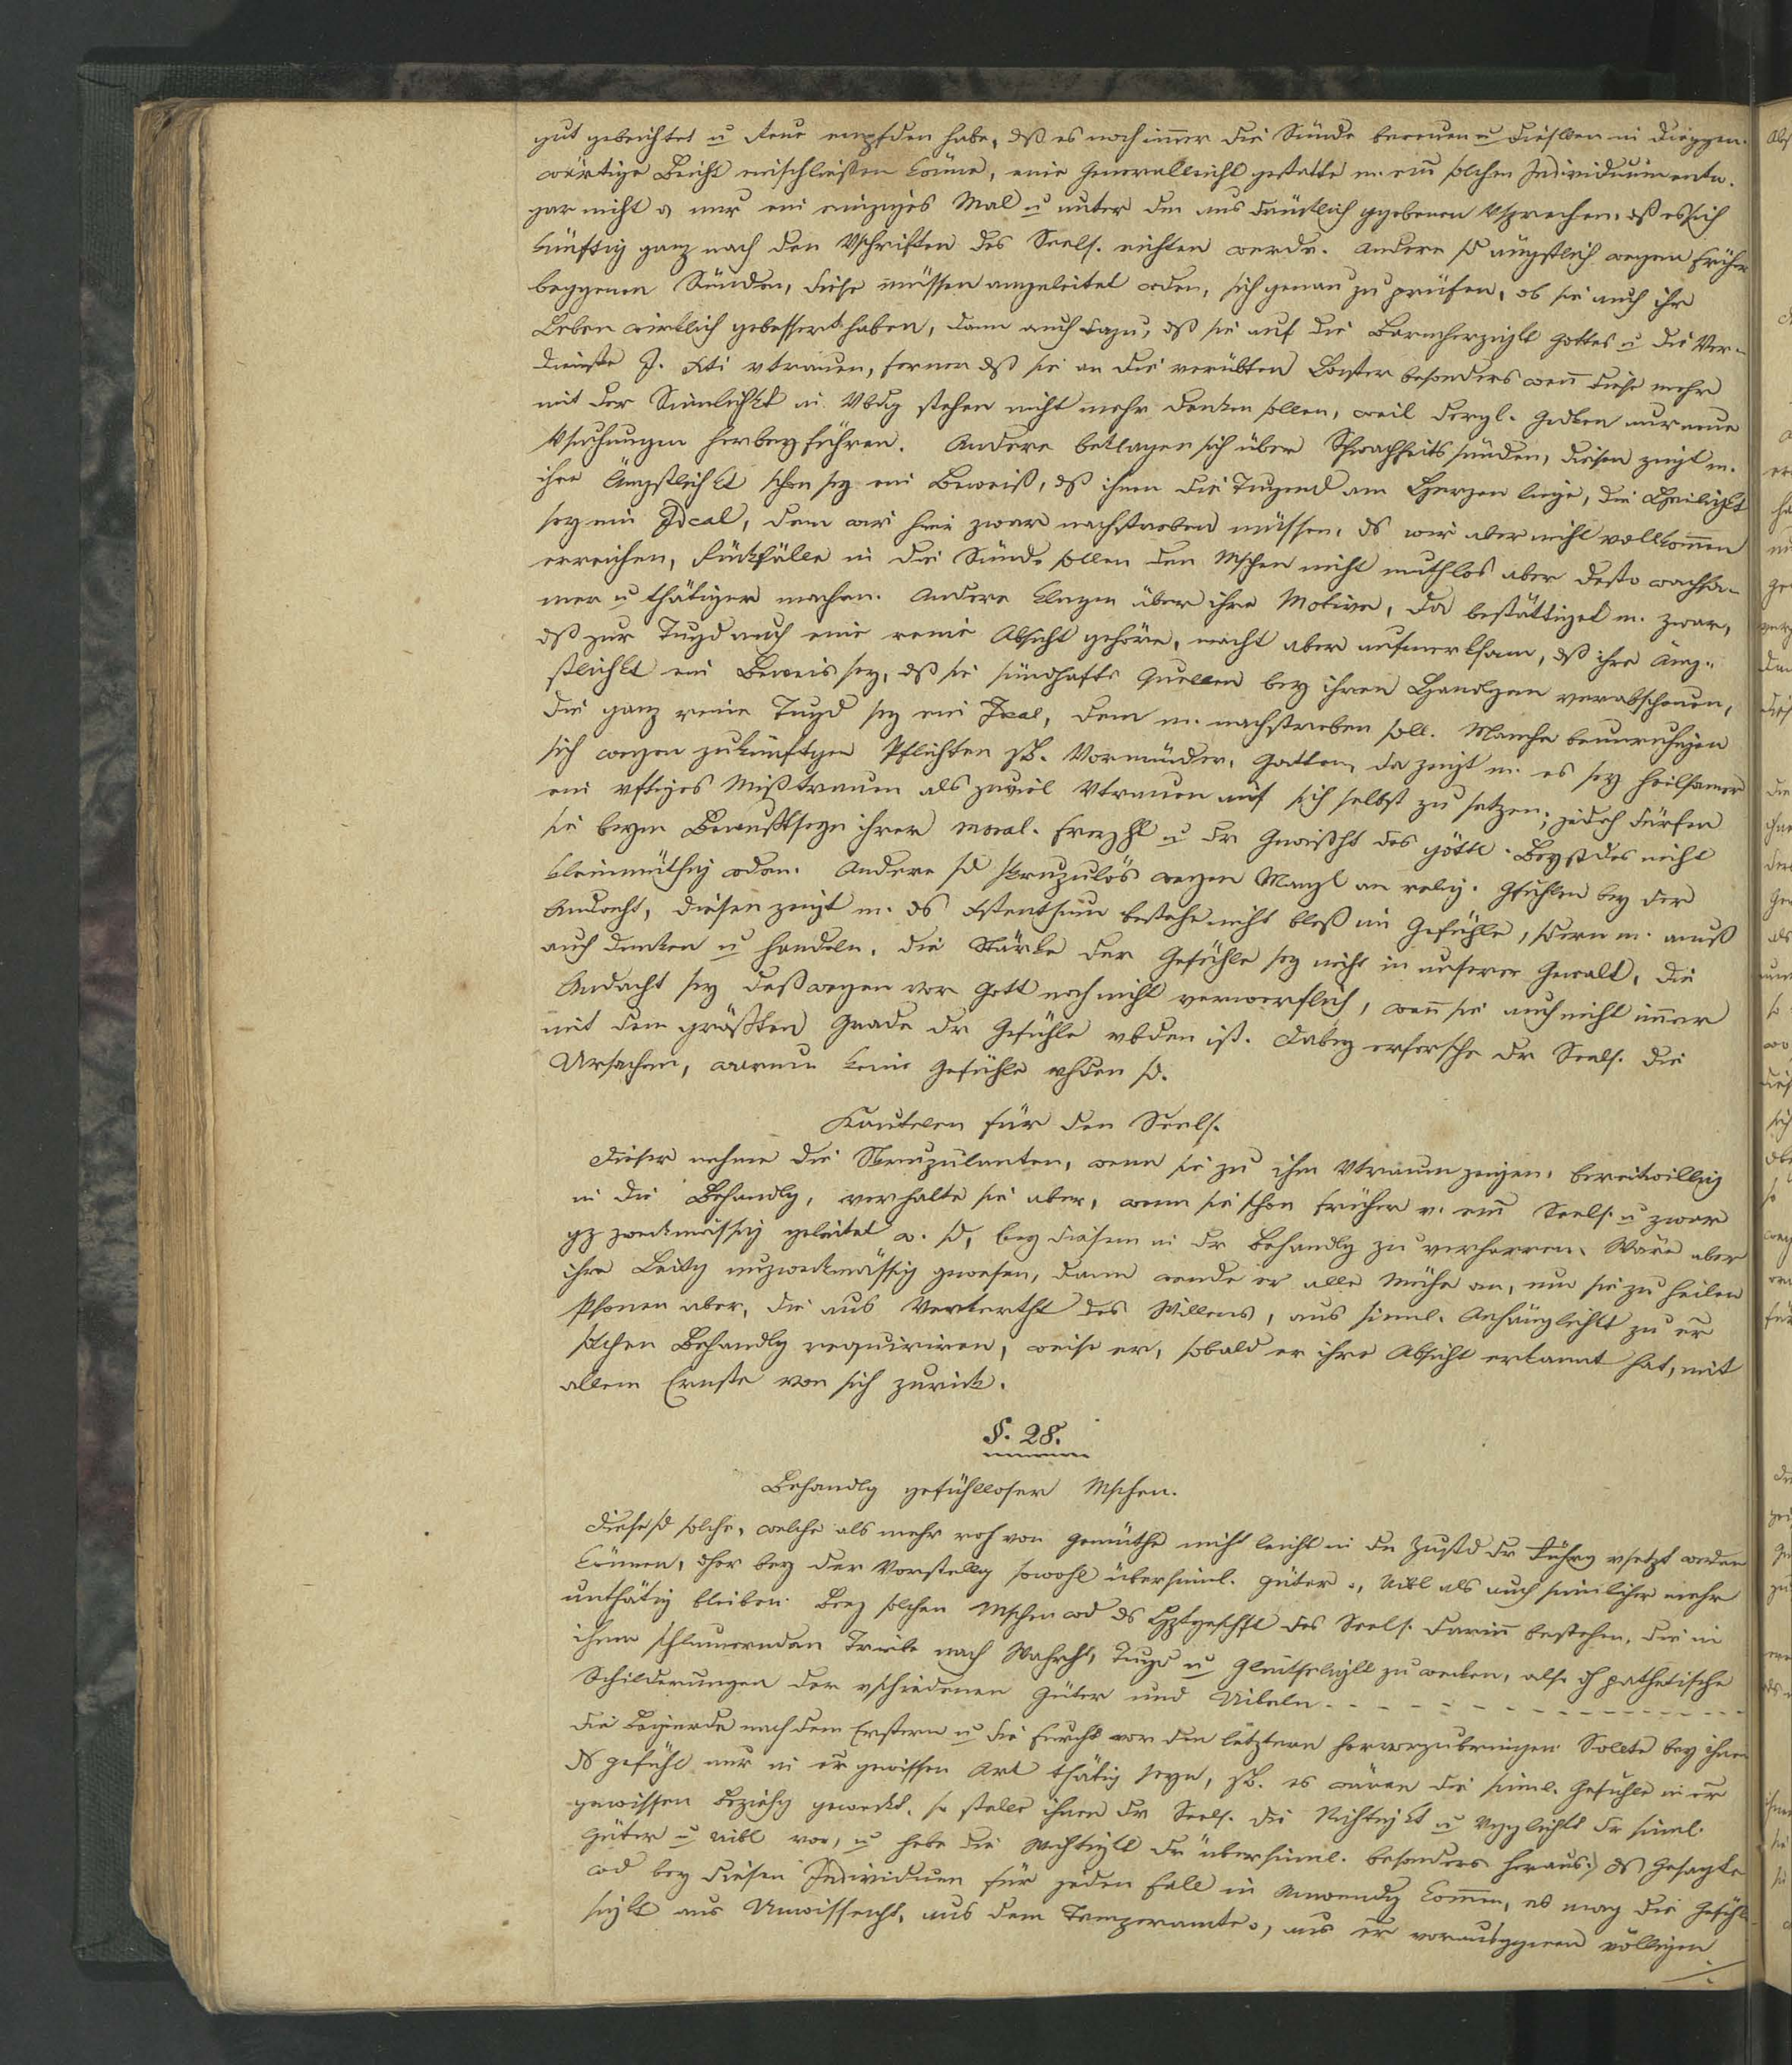 gut gebeichtet u Reue empfden habe, dß es noch imer die Sünde bereuen u dieselben in die ggen-
wärtige Beicht einschließen könne, eine Generalbeicht gestatte m. eim solchen Individuum entw.
gar nicht o nur ein einziges Mal u unter dem ausdrücklich ggebenen Vsprechen, dß es sich
künftig ganz nach den Vschriften des Seels. richten werde. Andere sd ängstlich wegen früher
beggenen Sünden, diese müssen angeleitet wden, sich genau zu prüfen, ob sie auch ihr
Leben wirklich gebessert haben, dann auch dazu, dß sie auf die Barmherzigkt Gottes u die Ver-
dienste J. Xti vtrauen, ferner dß sie an die verübten Laster besonders wen diese mehr
mit der Sinlichkt in Vbdg stehen nicht mehr denken sollen, weil dergl. Gedken nur neue
Vsuchungen herbeyführen. Andere beklagen sich über Schwachheitssünden, diesen zeigt m.
ihre Ängstlichkt schon sey ein Beweiß, dß ihnen die Tugend am Herzen liege, die Heiligkt
sey ein Ideal, dem wir hier zwar nachstreben müssen, ds wir aber nicht vollkomen
erreichen, Rückfälle in die Sünde sollen den Mschen nicht muthlos aber desto wachsa-
mer u thätiger machen. Andere klagen über ihre Motive, da bestättiget m. zwar,
dß zur Tugd auch eine reine Absicht gehöre, macht aber aufmerksam, dß ihre Äng-
stlichkt ein Beweis sey, dß sie sündhafte Quellen bey ihren Handlgen verabscheuen,
die ganz reine Tugd sey ein Ideal, dem m. nachstreben soll. Manche beunruhigen
sich wegen zukünftgen Pflichten zB. Vormünder, Gatten, da zeigt m. es sey heilsamer
ein vftiges Mißtrauen als zuviel Vtrauen auf sich selbst zu setzen; jedoch dürfen
sie beym Bewußtseyn ihrer moral. Freyht u dr Gewißht des göttl. Beystdes nicht
kleinmüthig wden. Andere sd skrupulös wegen Mangl an relig. Gfühlen bey der
Andacht, diesen zeigt m. ds Xstenthum bestehe nicht bloß im Gefühle, sdern m. muß
auch denken u handeln, die Stärke der Gefühle sey nicht in unserer Gewalt, die
Andacht sey deßwegen vor Gott noch nicht verwerflich, wen sie auch nicht imer
mit dem größten Grade dr Gefühle vbden ist. Dabey erforsche dr Seels. die
Ursachen, warum keine Gefühle vhden sd.
Kautelen für den Seels.
Dieser nehme die Skrupulanten, wenn sie zu ihm Vtrauen zeigen, bereitwillig
in die Behandlg, verhalte sie aber, wenn sie schon früher v. eim Seels. u zwar
gz zweckmässig geleitet w. sd, bey diesem in dr Behandlg zu verharren. Wäre aber
ihre Leitg unzweckmässig gewesen, dann wende er alle Mühe an, um sie zu heilen
Psonen aber, die aus Verkertht des Willens, aus sinnl. Anhänglichkt zu er
solchen Behandlg requiriren, weise er, sobald er ihre Absicht erkannt hat, mit
allem Ernste von sich zurück.
§. 28.
Behandlg gefühlloser Mschen.
Diese sd solche, welche als mehr roh von Gemüthe nicht leicht in den Zustd dr Rührg vsetzt werden
können, dher bey der Vorstellg sowohl übersinnl. Güter o, Uibl als auch sinnlicher mehr
unthätig bleiben. Bey solchen Mschen wd ds Hptgeschft des Seels. darin bestehen, die in
ihnen schlumernden Triebe nach Wahrht, Tugd u Glückseligkt zu wecken, also dh pathetische
Schilderungen der vschiedenen Güter und Uibeln - - - - - - - - - - - -
die Begierde nach dem Erstern u die Furcht vor den letztern hervorzubringen. Sollte bey ihnen
ds Gefühl nur in er gewissen Art thätig seyn, zB. es wären die sinnl. Gefühle in er
gewissen Beziehg geweckt, so stelle ihnen dr Seels. die Nichtigkt u Vggglichkt dr sinnl.
Güter u Uibl vor, u hebe die Wichtigkt dr übersinnl. besonders heraus; ds Gesagte
wd bey diesen Individuen für jeden Fall in Anwendg komen, es mag die Gefühl-
sigkt aus Unwissenht, aus dem Temperamte o, aus er vorausggnen völligen